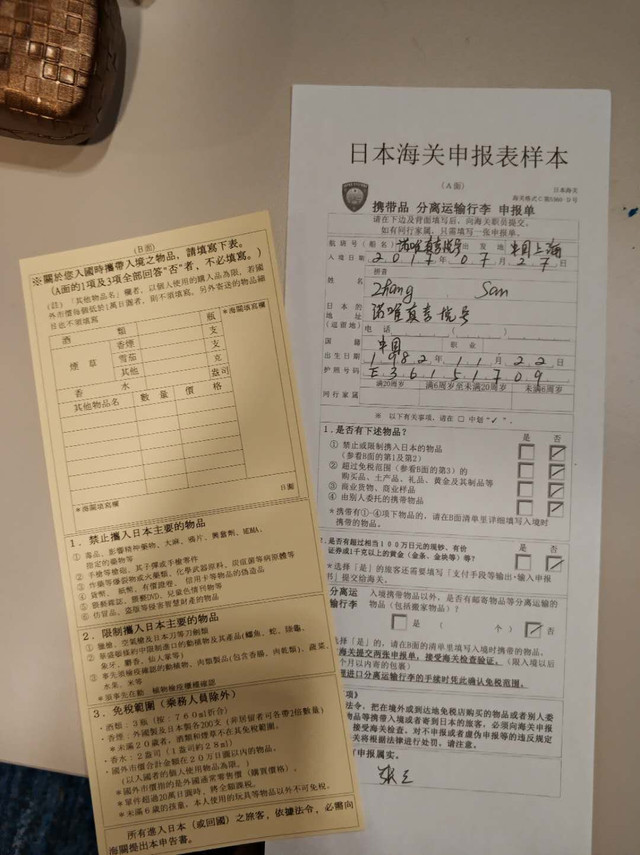 (B面)
※關於您入國時攜帶入境之物品，請填寫下表。
(A面的1項及3項全部回答"否"者，不必填寫。)
(註)「其他物品名」欄者，以個人使用的購入品為限，若國
外市價每個低於1萬日圓者，則不須填寫。另外寄送的物品細
目也不須填寫
酒 類 瓶 *海關填寫欄
煙草 香煙 支
雪茄 支
其他 克
香 水 盎司
其他物品名 數量 價格
*海關填寫欄 日圓
1．禁止攜入日本主要的物品
① 毒品、影響精神藥物、大麻、鴉片、興奮劑、MDMA、
指定的藥物等
② 手槍等槍砲、其子彈或手槍零件
③ 炸藥等爆裂物或火藥類、化學武器原料、炭疽菌等病原體等
④ 貨幣、紙幣、有價證卷、信用卡等物品的偽造品
⑤ 猥褻雜誌、猥褻DVD、兒童色情刊物等
⑥ 仿冒品、盜版等侵害智慧財產的物品
2．限制攜入日本主要的物品
① 獵槍、空氣槍及日本刀等刀劍類
② 華盛頓條約中限制進口的動植物及其產品(鱷魚、蛇、陸龜、
象牙、麝香、仙人掌等)
③ 事先須檢疫確認的動植物、肉類製品(包含香腸、肉乾類)、蔬菜、
水果、米等
*須事先在動．植物檢疫櫃檯確認
3．免稅範圍(乘務人員除外)
・酒類：3瓶(按：760ml折合)
・香煙：外國製及日本製各200支(非居留者可各帶2倍數量)
*未滿20歲者，酒類和煙草不在其免稅範圍。
・香水：2盎司(1盎司約28ml)
・國外市價合計金額在20万日圓以內的物品。
(以入國者的個人使用物品為限。)
*國外市價指的是外國通常零售價(購買價格)。
*單件超過20萬日圓時，將全額課稅。
*未滿6歲的孩童，本人使用的玩具等物品以外不可免稅。
所有進入日本(或回國)之旅客，依據法令，必需向
海關提出本申告書。
日本海关申报表样本
(A面)
日本海关
海关格式C第5360 D号
携带品 分离运输行李 申报单
请在下边及背面填写后，向海关职员提交。
如有同行家属，只需填写一张申报单。
航班号（船名） 诺唯真喜悦号 出发地 中国上海
入境日期 2017年07月27日
拼音
姓名 Zhang San
日本的地址（逗留地） 诺唯真喜悦号
电话 ( )
国籍 中国 职业
出生日期 1982年11月22日
护照号码 E36151709
同行家属 满20周岁 满6周岁至未满20周岁 未满6周岁
※ 以下有关事项，请在 □ 中划"✓"。
1.是否有下述物品? 是 否
① 禁止或限制携入日本的物品
(参看B面的第1及第2)
② 超过免税范围（参看B面的第3）的
购买品、土产品、礼品、黄金及其制品等
③ 商业货物、商业样品
④ 由别人委托的携带物品
*携带有①-④项下物品的，请在B面清单里详细填写入境时
携带的物品。
是否有超过相当100万日元的现钞、有价 是 否
证券或1千克以上的黄金（金条、金块等）等?
*选择「是」的旅客还需要填写「支付手段等输出·输入申报
书」提交给海关。
分离运输行李 入境携带物品以外，是否有邮寄物品等分离运输的
物品（包括搬家物品）?
是 （ 个） 否
选择「是」的，请在B面的清单里填写入境时携带的物品，
海关提交两张申报单，接受海关检查验证。（限入境以后
个月以内寄的包裹）
报进口分离运输行李的手续时凭此确认免税范围。
项》
法令，把在境外或到达地免税店购买的物品或者别人委
物品等携带入境或者寄到日本的旅客，必须向海关申报
，接受海关检查。对不申报或者虚伪申报等的违反规定
关将根据法律进行处罚，请注意。
报属实。
张三